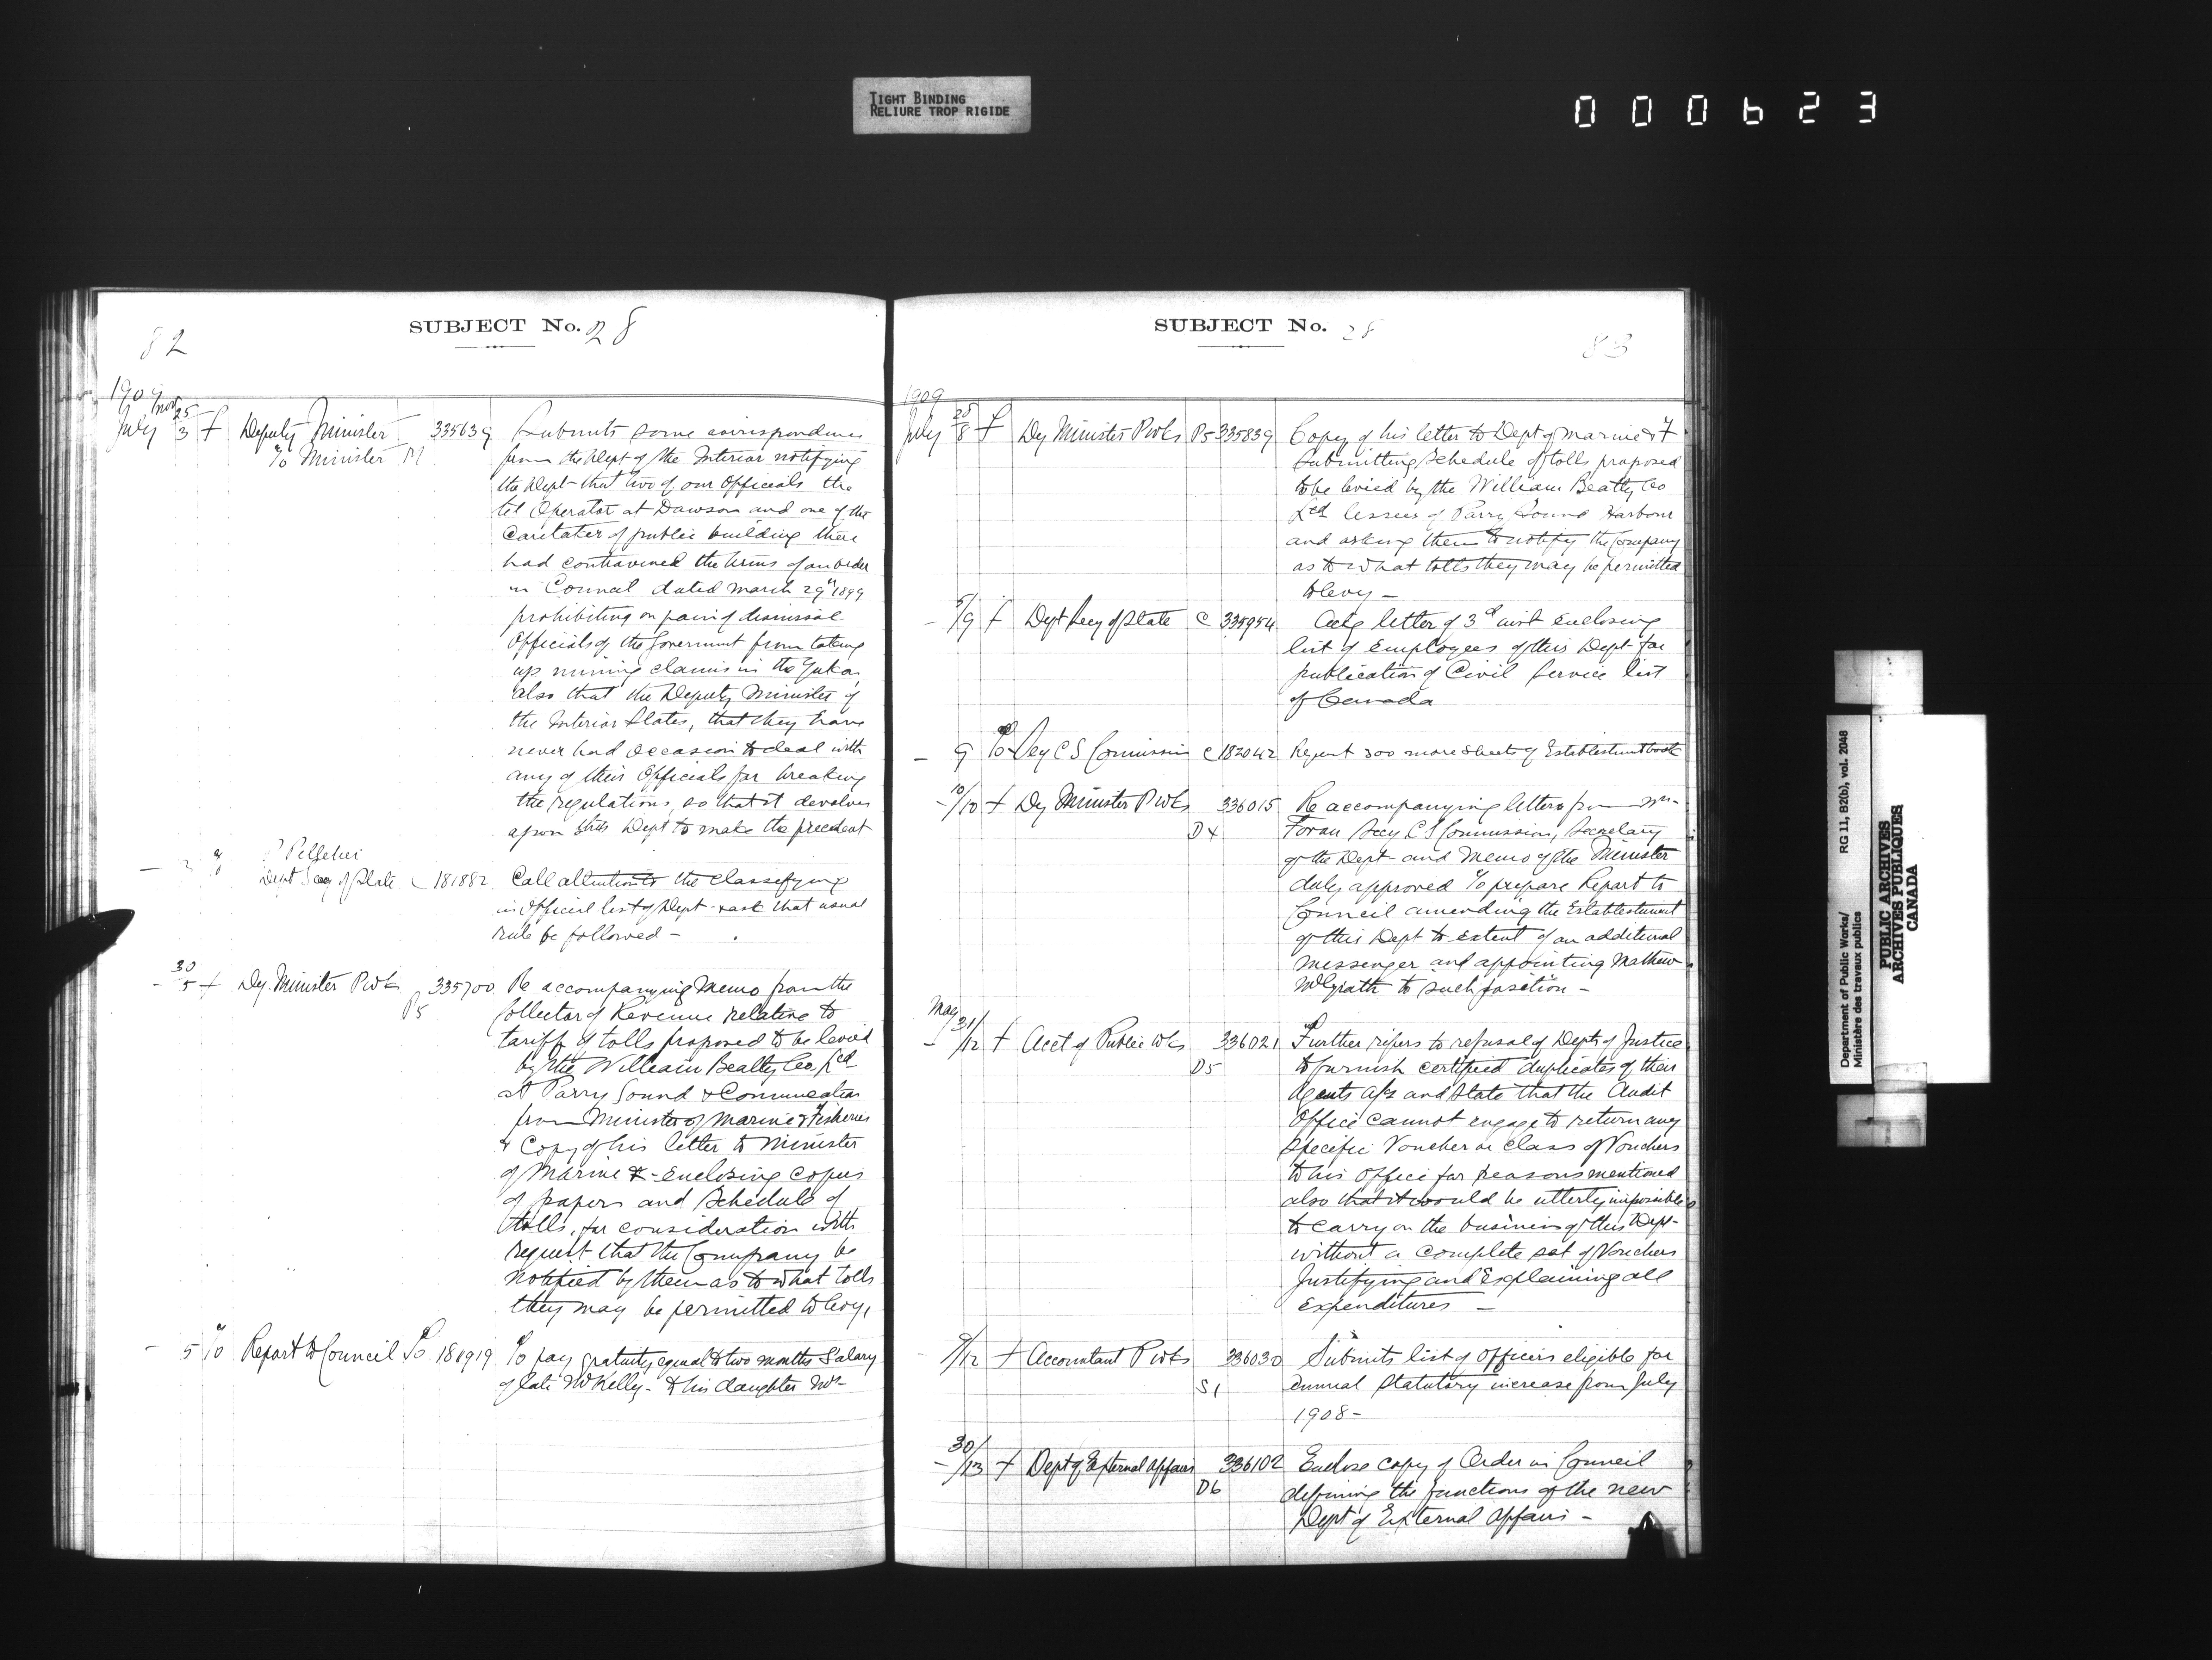 TIGHT BINDING
RELIURE TROP RIGIDE
000623
SUBJECT No. 28
82
1909
Nov 25
July 3 f Deputy Minister 335639 Submits some correspondence
To Minister M from the Dept of the Interior notifying
the Dept that two of our Officials the
tel Operator at Dawson and one of the
Caretaker of public building there
had contravened the terms of an order
in Council dated March 29th 1899
prohibiting on pain of dismissal
Officials of the Government from taking
up mining claims in the Yukon
also that the Deputy Minister of
the Interior States, that they have
never had occasion to deal with
any of their Officials for breaking
the regulations, so that it devolves
upon this Dept to make the precedent
P Pelletier
Dept Secy of State C 181882 Call attention to the classifying
in Official list of Dept & ask that usual
rule be followed -
30
- 5 f Dy. Minister P Wks 335700 Re accompanying Memo from the
P5 Collector of Revenue relative to
tariff of tolls proposed to be levied
by the William Beatty Co. Ltd
at Parry Sound & Communication
from Minister of Marine & Fisheries
& Copy of his letter to Minister
of Marine & - enclosing copies
of papers and Schedule of
tolls, for consideration with
request that the Company be
notified by them as to what tolls
they may be permitted to levy,
- 5 To Report to Council 181919 To pay gratuity equal to two months Salary
of late McKelly - to his daughter
SUBJECT No. 28
83
1909
July 28/8 f Dy Minister P Wks P5 335839 Copy of his letter to Dept of Marine & F
Submitting Schedule of tolls proposed
to be levied by the William Beatty Co
Ltd lessees of Parry Sound Harbour
and asking them to notify the Company
as to what tolls they may be permitted
to levy -
- 5/9 f Dept Secy of State C 335954 Ackg letter of 3d inst enclosing
list of Employees of this Dept for
publication of Civil Service list
of Canada
- 9 To Secy C S Commission C 182042 Request 300 more sheets of Establishment book
- 10/10 f Dy Minister P Wks 336015 Re accompanying letters from Mr.
D4 Foran Secy C S Commission, Secretary
of the Dept and Memo of the Minister
duly approved To prepare Report to
Council amending the Establishment
of this Dept to extent of an additional
messenger and appointing Mathew
McGrath to such position -
May 31/
- /12 f Acct of Public Wks 336021 Further refers to refusal of Dept of Justice
D5 to furnish certified duplicates of their
Agents a/cs and State that the Audit
Office cannot engage to return any
specific Voucher or class of Vouchers
to his Office for reasons mentioned
also that it would be utterly impossible
to carry on the business of this Dept -
without a complete set of Vouchers
Justifying and Explaining all
Expenditures -
- 9/12 f Accountant P Wks 336030 Submits list of Officers eligible for
S1 annual Statutory increase from July
1908 -
30/
- /13 f Dept of External Affairs 336102 Enclose copy of Order in Council
D6 defining the functions of the new
Dept of External Affairs -
Department of Public Works/ RG 11, B2(b), vol. 2048
Ministère des travaux publics
PUBLIC ARCHIVES
ARCHIVES PUBLIQUES
CANADA